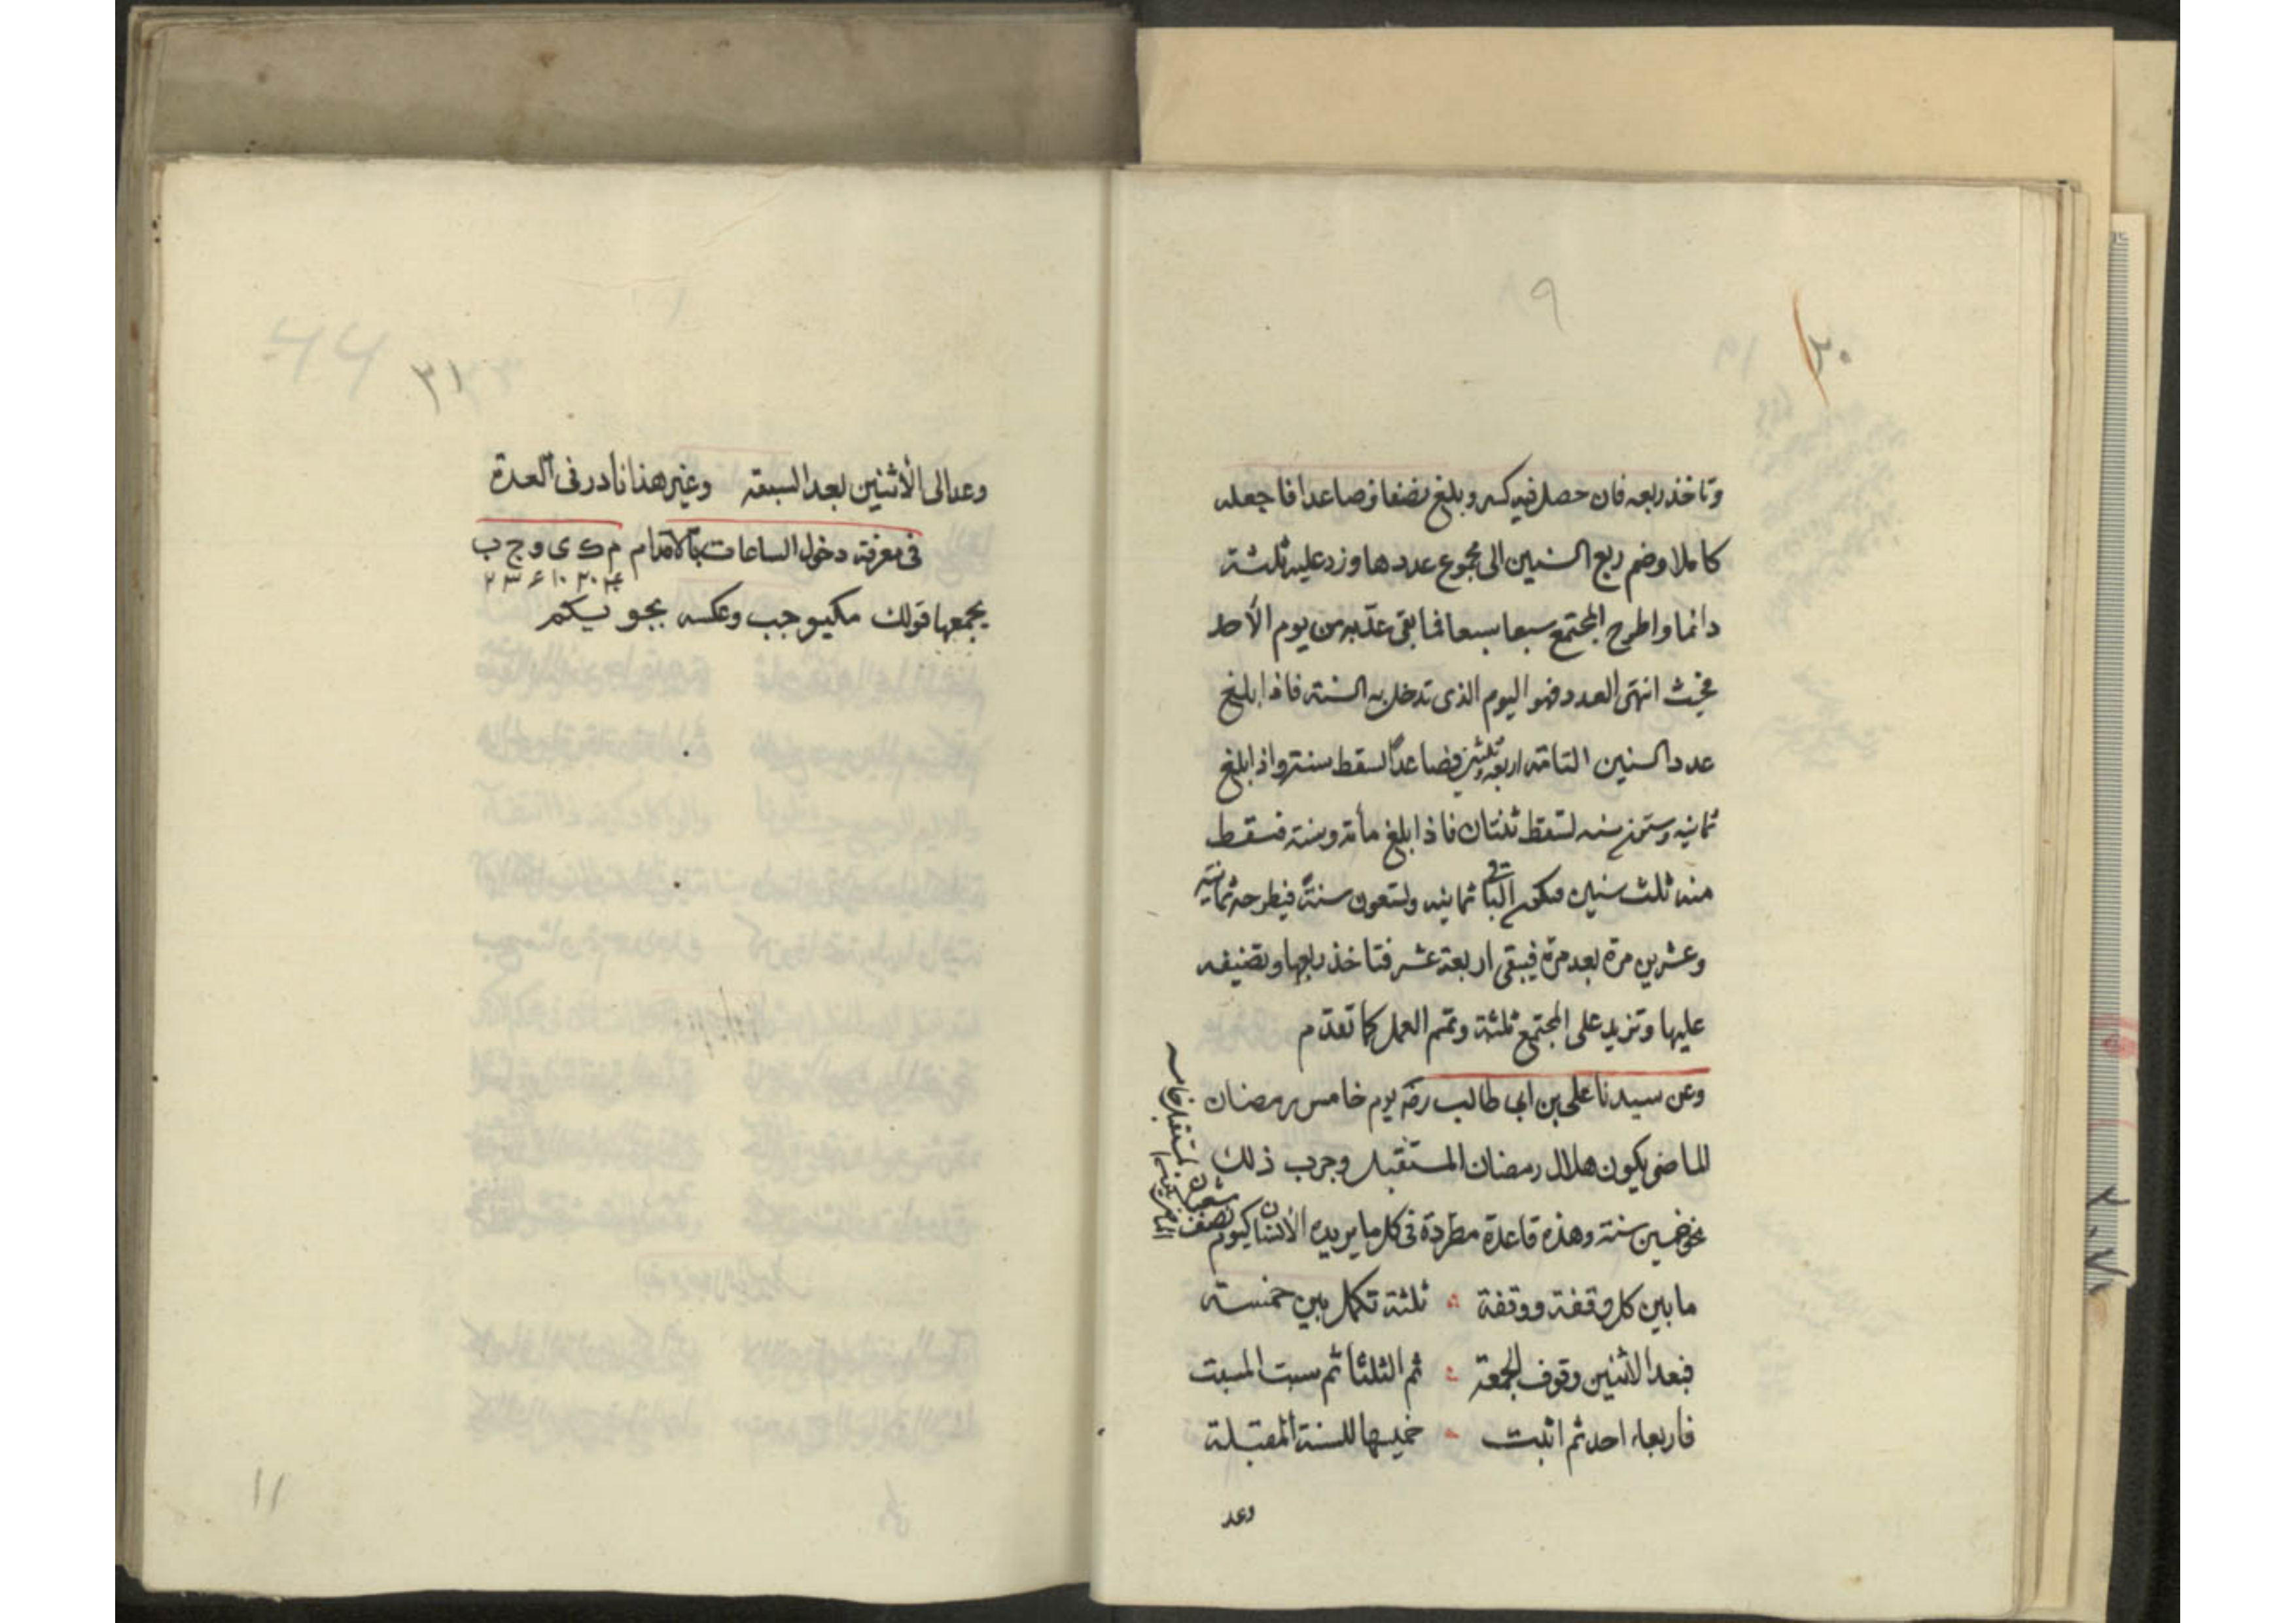 ٢٠
وتاخذ ربعه فان حصل فيه كسر وبلغ نصفا فصاعدا فاجعله
كاملا وضم ربع السنين الى مجموع عددها وزد عليه ثلثة
دائما واطرح المجتمع سبعا سبعا فما بقى عدّ به من يوم الأحد
فحيث انتهى العدد فهو اليوم الذى تدخل به السنة فاذا بلغ
عدد السنين التامة اربعة وثلثين فصاعداً سقط سنة واذا بلغ
ثمانيه وستين سنه تسقط ثنتان فاذا بلغ مأة وسنة فسقط
منه ثلث سنين فيكون الباقى ثمانيه وتسعون سنةً فيطرحه ثمانية
وعشرين مرة بعد مرة فيبقى اربعة عشر فتاخذ ربعها وتضيفه
عليها وتزيد على المجتمع ثلثة وتمم العمل كما تقدم
وعن سيدنا على بن ابى طالب رضه يوم خامس رمضان
الماضى يكون هلال رمضان المستقبل وجرب ذلك
نحو خمسين سنة وهذه قاعدة مطردة فى كل ما يريده الأنسان كيوم
نصف شعبان
ما بين كل وقفة ووقفة ثلثة تكمل بين خمسة
فبعد الاثنين وقوف الجمعة ثم الثلثا ثم سبت المسبت
فاربعاء احد ثم اثبت خميسها للسنة المقبلة
وعد
٢١
وعد الى الأثنين بعد السبعة وغير هذا نادر فى العدة
فى معرفة دخول الساعات بالأقدام م ك ى و ج ب
يجمعها قولك مكيوجب وعكسه بجو يكم
11